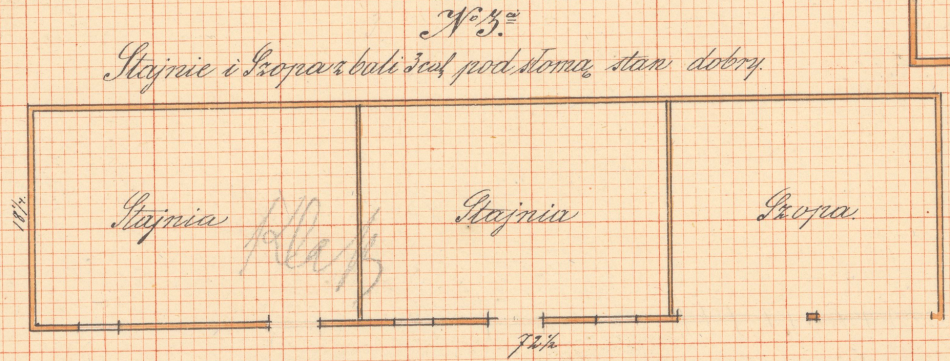 No 3.a
Stajnie i Szopa z bali 3 cal. pod słomą stan dobry.
Stajnia
Stajnia
Szopa.
72½